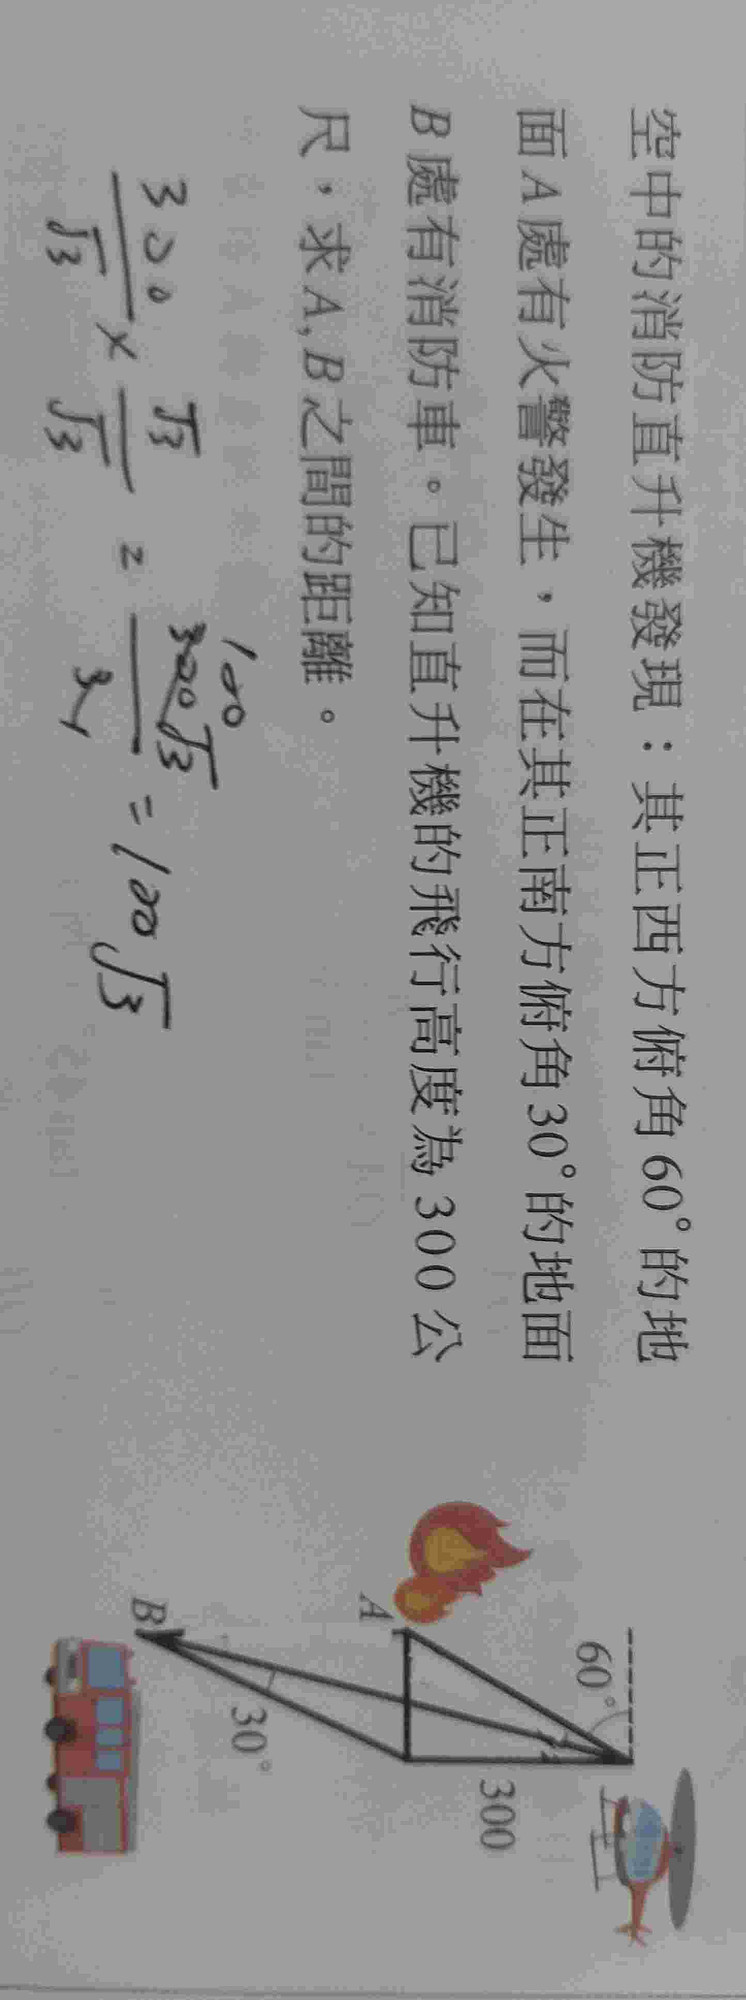 空中的消防直升機發現：其正西方俯角60°的地
面A處有火警發生，而在其正南方俯角30°的地面
B處有消防車。已知直升機的飛行高度為300公
尺，求A,B之間的距離。
300/√3 × √3/√3 = 300√3/3 = 100√3
100
1
60°
300
A
30°
B